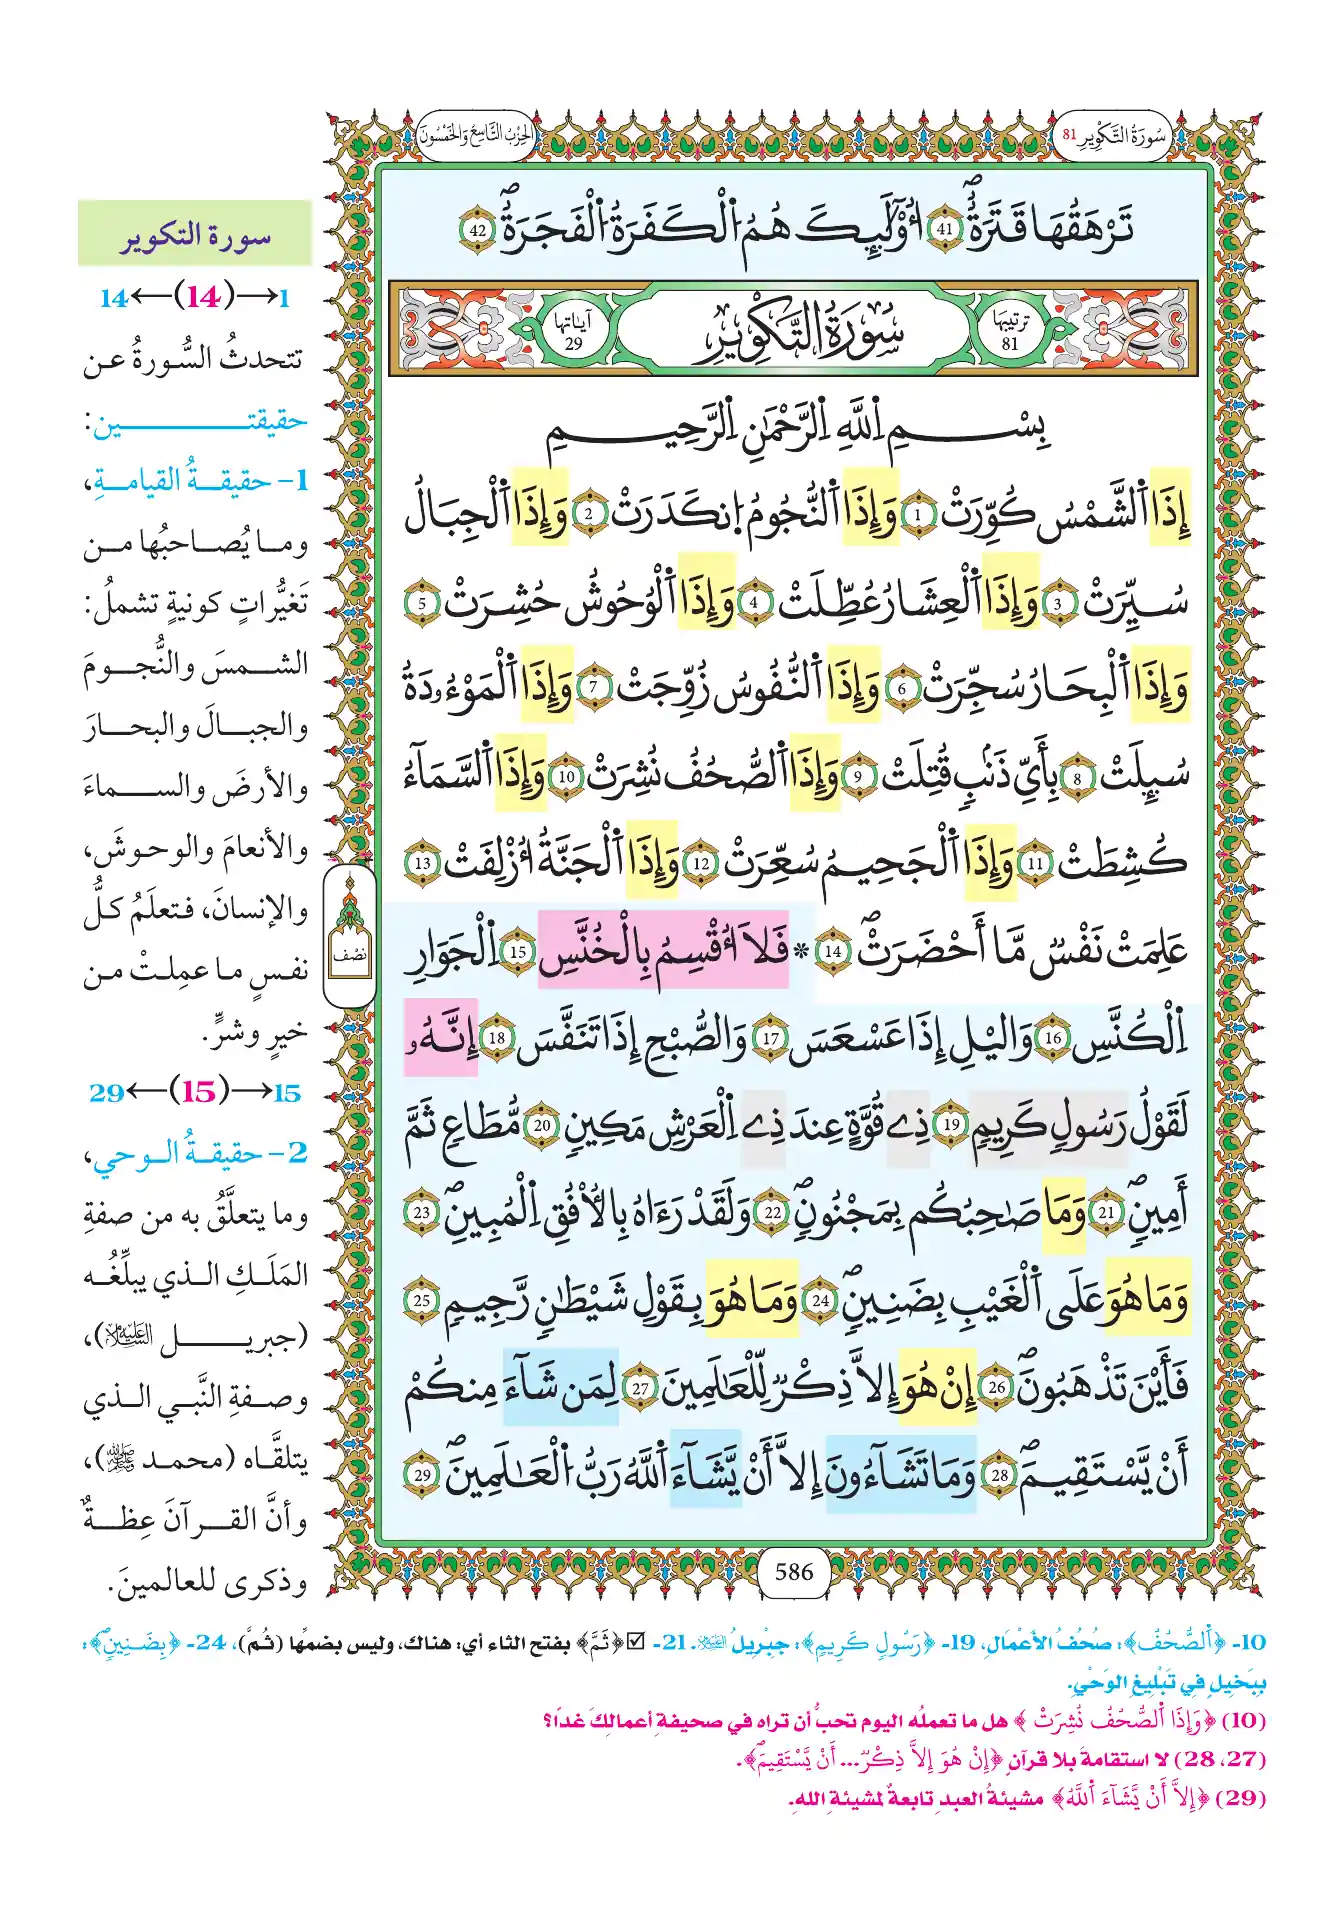 سُورَةُ التَّكْوِيرِ 81
الحِزْبُ التَّاسِعُ وَالخَمْسُونَ
تَرْهَقُهَا قَتَرَةٌ 41 أُوْلَٰٓئِكَ هُمُ الْكَفَرَةُ الْفَجَرَةُ 42
ترتيبها 81
سُورَةُ التَّكْوِيرِ
آياتها 29
بِسْمِ اِللَّهِ اِلرَّحْمَٰنِ اِلرَّحِيمِ
إِذَا اَلشَّمْسُ كُوِّرَتْ 1 وَإِذَا اَلنُّجُومُ اُ۪نكَدَرَتْ 2 وَإِذَا اَلْجِبَالُ
سُيِّرَتْ 3 وَإِذَا اَلْعِشَارُ عُطِّلَتْ 4 وَإِذَا اَلْوُحُوشُ حُشِرَتْ 5
وَإِذَا اَلْبِحَارُ سُجِّرَتْ 6 وَإِذَا اَلنُّفُوسُ زُوِّجَتْ 7 وَإِذَا اَلْمَوْءُۥدَةُ
سُئِلَتْ 8 بِأَيِّ ذَنۢبٖ قُتِلَتْ 9 وَإِذَا اَلصُّحُفُ نُشِرَتْ 10 وَإِذَا اَلسَّمَآءُ
كُشِطَتْ 11 وَإِذَا اَلْجَحِيمُ سُعِّرَتْ 12 وَإِذَا اَلْجَنَّةُ أُزْلِفَتْ 13
عَلِمَتْ نَفْسٞ مَّا أَحْضَرَتْ 14 * فَلَا أُقْسِمُ بِالْخُنَّسِ 15 اِلْجَوَارِ
اِلْكُنَّسِ 16 وَاليْلِ إِذَا عَسْعَسَ 17 وَالصُّبْحِ إِذَا تَنَفَّسَ 18 إِنَّهُۥ
لَقَوْلُ رَسُولٖ كَرِيمٖ 19 ذِے قُوَّةٍ عِندَ ذِے اِلْعَرْشِ مَكِينٖ 20 مُّطَاعٖ ثَمَّ
أَمِينٖ 21 وَمَا صَاحِبُكُم بِمَجْنُونٖ 22 وَلَقَدْ رَءَاهُ بِالْأُفُقِ اِلْمُبِينِ 23
وَمَا هُوَ عَلَى اَلْغَيْبِ بِضَنِينٖ 24 وَمَا هُوَ بِقَوْلِ شَيْطَٰنٖ رَّجِيمٖ 25
فَأَيْنَ تَذْهَبُونَ 26 إِنْ هُوَ إِلَّا ذِكْرٞ لِّلْعَٰلَمِينَ 27 لِمَن شَآءَ مِنكُمْ
أَنْ يَّسْتَقِيمَ 28 وَمَا تَشَآءُونَ إِلَّا أَنْ يَّشَآءَ اَللَّهُ رَبُّ اُلْعَٰلَمِينَ 29
نصف
586
سورة التكوير
1→(14)←14
تتحدثُ السُّورةُ عن
حقيقتين:
1- حقيقةُ القيامةِ،
وما يُصاحبُها من
تَغيُّراتٍ كونيةٍ تشملُ:
الشمسَ والنُّجومَ
والجبالَ والبحارَ
والأرضَ والسماءَ
والأنعامَ والوحوشَ،
والإنسانَ، فتعلَمُ كلُّ
نفسٍ ما عمِلتْ من
خيرٍ وشرٍّ.
15→(15)←29
2- حقيقةُ الوحي،
وما يتعلَّقُ به من صفةِ
المَلَكِ الذي يبلِّغُه
(جبريل عليه السلام)،
وصفةِ النَّبي الذي
يتلقَّاه (محمد ﷺ)،
وأنَّ القرآنَ عِظةٌ
وذكرى للعالمينَ.
10- ﴿اَلصُّحُفُ﴾: صُحُفُ الأَعْمَالِ، 19- ﴿رَسُولٖ كَرِيمٖ﴾: جِبْرِيلُ عليه السلام. 21- ☑ ﴿ثَمَّ﴾ بفتح الثاء أي: هناك، وليس بضمِّها (ثُمَّ)، 24- ﴿بِضَنِينٖ﴾:
بِبَخِيلٍ فِي تَبْلِيغِ الوَحْيِ.
(10) ﴿وَإِذَا اَلصُّحُفُ نُشِرَتْ﴾ هل ما تعملُه اليوم تحبُّ أن تراه في صحيفةِ أعمالِكَ غداً؟
(27، 28) لا استقامةَ بلا قرآنٍ ﴿إِنْ هُوَ إِلَّا ذِكْرٞ... أَنْ يَّسْتَقِيمَ﴾.
(29) ﴿إِلَّا أَنْ يَّشَآءَ اَللَّهُ﴾ مشيئةُ العبدِ تابعةٌ لمشيئةِ اللهِ.